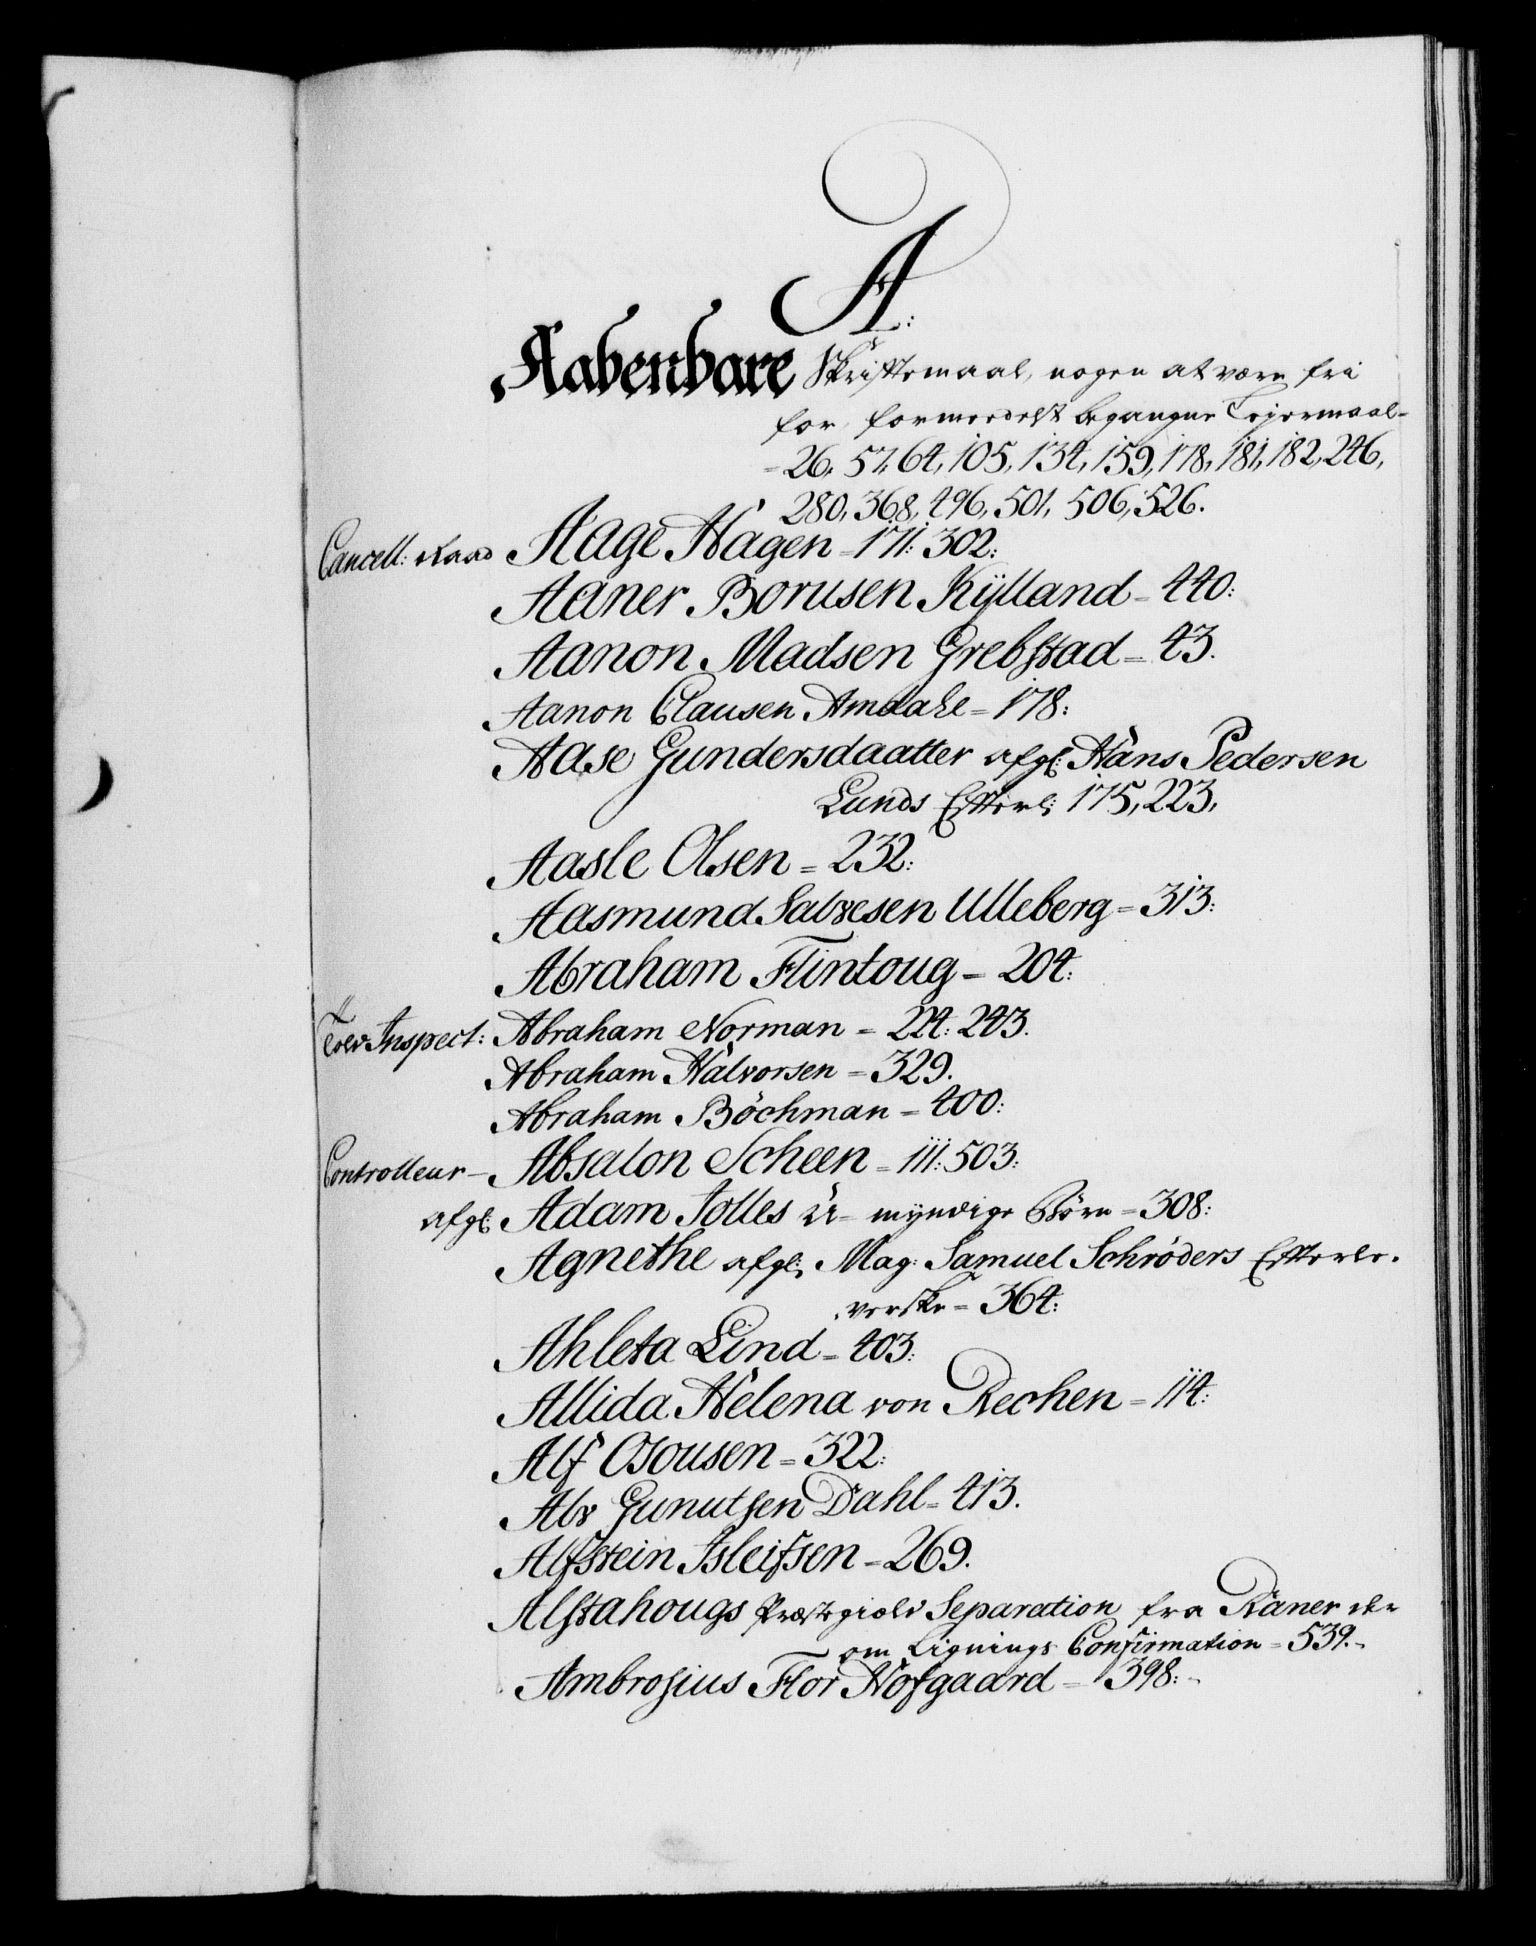 A:
Aabenbare Skriftemaal, nogen at være fri
for, formedelst begangne Lejermaal -
= 26, 57, 64, 105, 134, 159, 178, 181, 182, 246,
280, 368, 496, 501, 506, 526.
Cancell: Raad Aage Hagen = 171: 302:
Aaner Borusen Kÿlland = 440:
Aanon Madsen Grebstad = 43.
Aanon Clausen Amdahl = 178:
Aase Gundersdaatter afgl: Hans Pedersen
Lunds Efterl: 175, 223,
Aasle Olsen = 232:
Aasmund Salvesen Ulleberg = 313:
Abraham Flintoug = 204:
Told Inspect: Abraham Norman = 224: 243.
Abraham Halvorsen = 329.
Abraham Böchman = 400:
Controlleur - Absalon Scheen = 111: 503:
afgl: Adam Tolles U- myndige Börn = 308:
Agnethe afgl: Mag: Samuel Schrøders Efterle-
verske = 364:
Ahleta Lind = 403:
Allida Helena von Rechen = 114:
Alf Osousen = 322:
Alv Gunutsen Dahl = 413.
Alfstein Isleifsen = 269.
Alstahougs Præstegield Separation fra Raner
om Lignings Confirmation = 539. -
Ambrosius Flor Hofgaard = 398: -